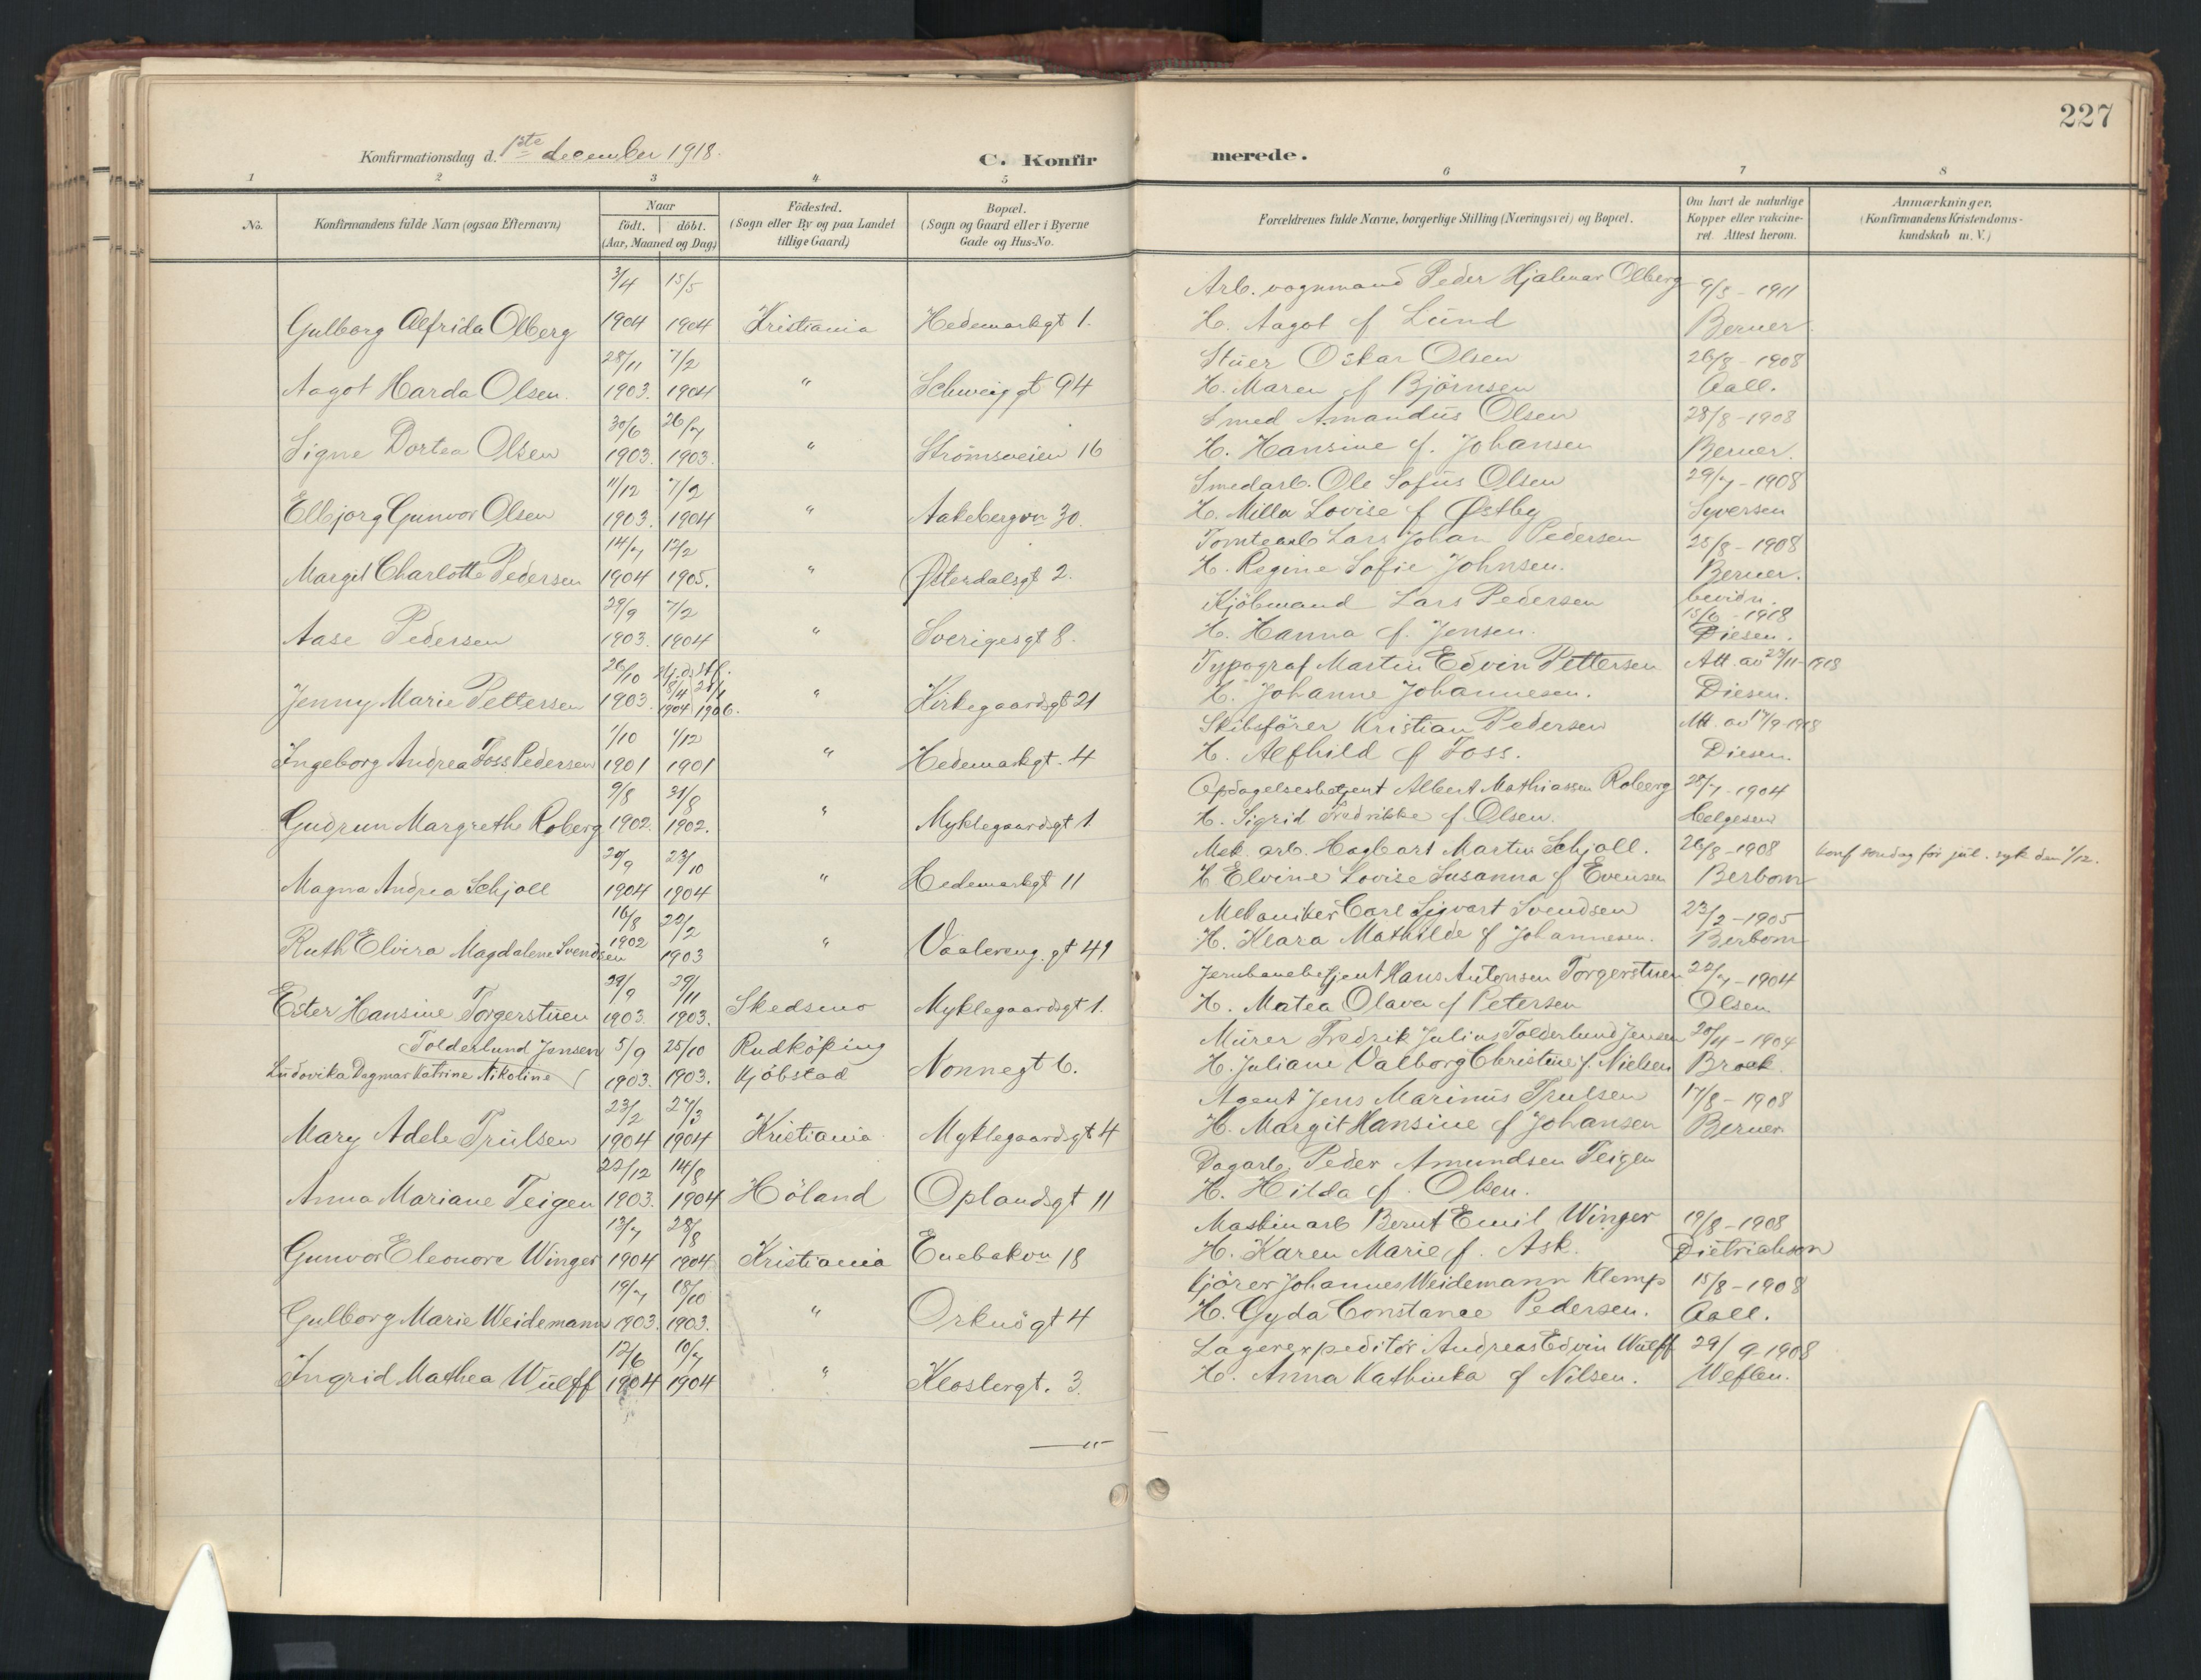 227
Konfirmationsdag d. 1ste december 1918.
C. Konfirmerede.
1 2 3 4 5 6 7 8
No.
Konfirmandens fulde Navn (ogsaa Efternavn)
Naar
födt. döbt.
(Aar, Maaned og Dag)
Födested.
(Sogn eller By og paa Landet
tillige Gaard)
Bopæl.
(Sogn og Gaard eller i Byerne
Gade og Hus-No.
Forældrenes fulde Navne, borgerlige Stilling (Næringsvei) og Bopæl.
Om havt de naturlige
Kopper eller vakcine-
ret. Attest herom.
Anmærkninger.
(Konfirmandens Kristendoms-
kundskab m. V.)
3/4 15/5 Arb. vognmand Peder Hjalmar Olberg 9/5 - 1911
Gulborg Alfrida Olberg 1904 1904 Kristiania Hedemarkgt 1. H. Aagot f Lund Berner
28/11 7/2 Stuer Oskar Olsen 26/8 - 1908
Aagot Harda Olsen. 1903. 1904 " Schweiggt 94 H. Maren f Bjørnsen Aall.
30/6 26/7 Smed Amandus Olsen 28/8 - 1908
Signe Dortea Olsen 1903. 1903. " Strømsveien 16 H. Hansine f. Johansen Berner.
11/12 7/2 Smedarb. Ole Sofus Olsen 29/7 - 1908
Elbjorg Gunvor Olsen 1903. 1904 " Aakebergvn 30. H. Milla Lovise f Østby Syversen
14/7 12/2 Tomtearb Lars Johan Pedersen 25/8 - 1908
Margit Charlotte Pedersen 1904 1905. " Østerdalsgt 2. H. Regine Sofie Johnsen. Berner.
29/9 7/2 Kjöbmand Lars Pedersen bevidn. 15/6 - 1918
Aase Pedersen 1903. 1904 " Sverigesgt 8. H. Hanna f. Jensen. Diesen.
26/10 Hj.d. stf. 8/4 Typograf Martin Edvin Pettersen Att. av 23/11-1918
Jenny Marie Pettersen 1903. 1904 1906. " Kirkegaardsgt 21 H. Johanne Johannesen. Diesen.
1/10 1/12 Skibsförer Kristian Pedersen Att. av 17/9-1918
Ingeborg Andrea Foss Pedersen 1901 1901 " Hedemarkgt. 4 H. Alfhild f Foss. Diesen.
9/8 31/8 Opdagelsesbetjent Albert Mathiassen Roberg 28/7 - 1904
Gudrun Margrethe Roberg 1902. 1902. " Myklegaardsgt 1 H. Sigrid Fredrikke f Olsen. Helgesen
20/9 23/10 Mek. arb. Hagbart Martin Schjoll. 26/8 - 1908 konf søndag før jul. syk den 1/12.
Magna Andrea Schjoll 1904 1904 " Hedemarkgt 11 H Elvine Lovise Susanna f Evensen Berbom
16/8 22/2 Mekaniker Carl Sigvart Svendsen 23/2 - 1905
Ruth Elvira Magdalene Svendsen 1902 1903 " Vaalereng. gt 41 H. Klara Mathilde f Johannesen. Berbom
29/9 29/11 Jernbanebetjent Hans Antonsen Torgerstuen 22/7 - 1904
Ester Hansine Torgerstuen 1903. 1903. Skedsmo Myklegaardsgt 1. H. Matea Olava f Petersen Olsen
Tolderlund Jensen 5/9 25/10 Rudköping Murer Fredrik Julius Tolderlund Jensen 20/4 - 1904
Ludovika Dagmar Katrine Nikoline 1903. 1903. Kjöbstad Nonnegt 6. H. Juliane Valborg Christine f. Nielsen Brock.
23/2 27/3 Agent Jens Marinus Trulsen 17/8 - 1908
Mary Adele Trulsen 1904 1904 Kristiania Myklegaardsgt 4 H. Margit Hansine f Johansen Berner
22/12 14/8 Dagarb. Peder Amundsen Teigen
Anna Mariane Teigen 1903. 1904 Höland Oplandsgt 11 H. Hilda f. Olsen.
13/7 28/8 Maskinarb Bernt Emil Winger 19/8 - 1908
Gunvor Eleonore Winger 1904 1904 Kristiania Enebakvn 18 H. Karen Marie f. Ask. Dietrichson
19/7 18/10 Kjører Johannes Weidemann Klemp 15/8 - 1908
Gulborg Marie Weidemann 1903. 1903. " Orknögt 4 H. Gyda Constance Pedersen. Aall.
12/6 10/7 Lagerexpeditör Andreas Edvin Wulff 29/9-1908
Ingrid Mathea Wulff 1904 1904 " Klostergt. 3. H. Anna Kathinka f Nilsen. Weflen.
—"—